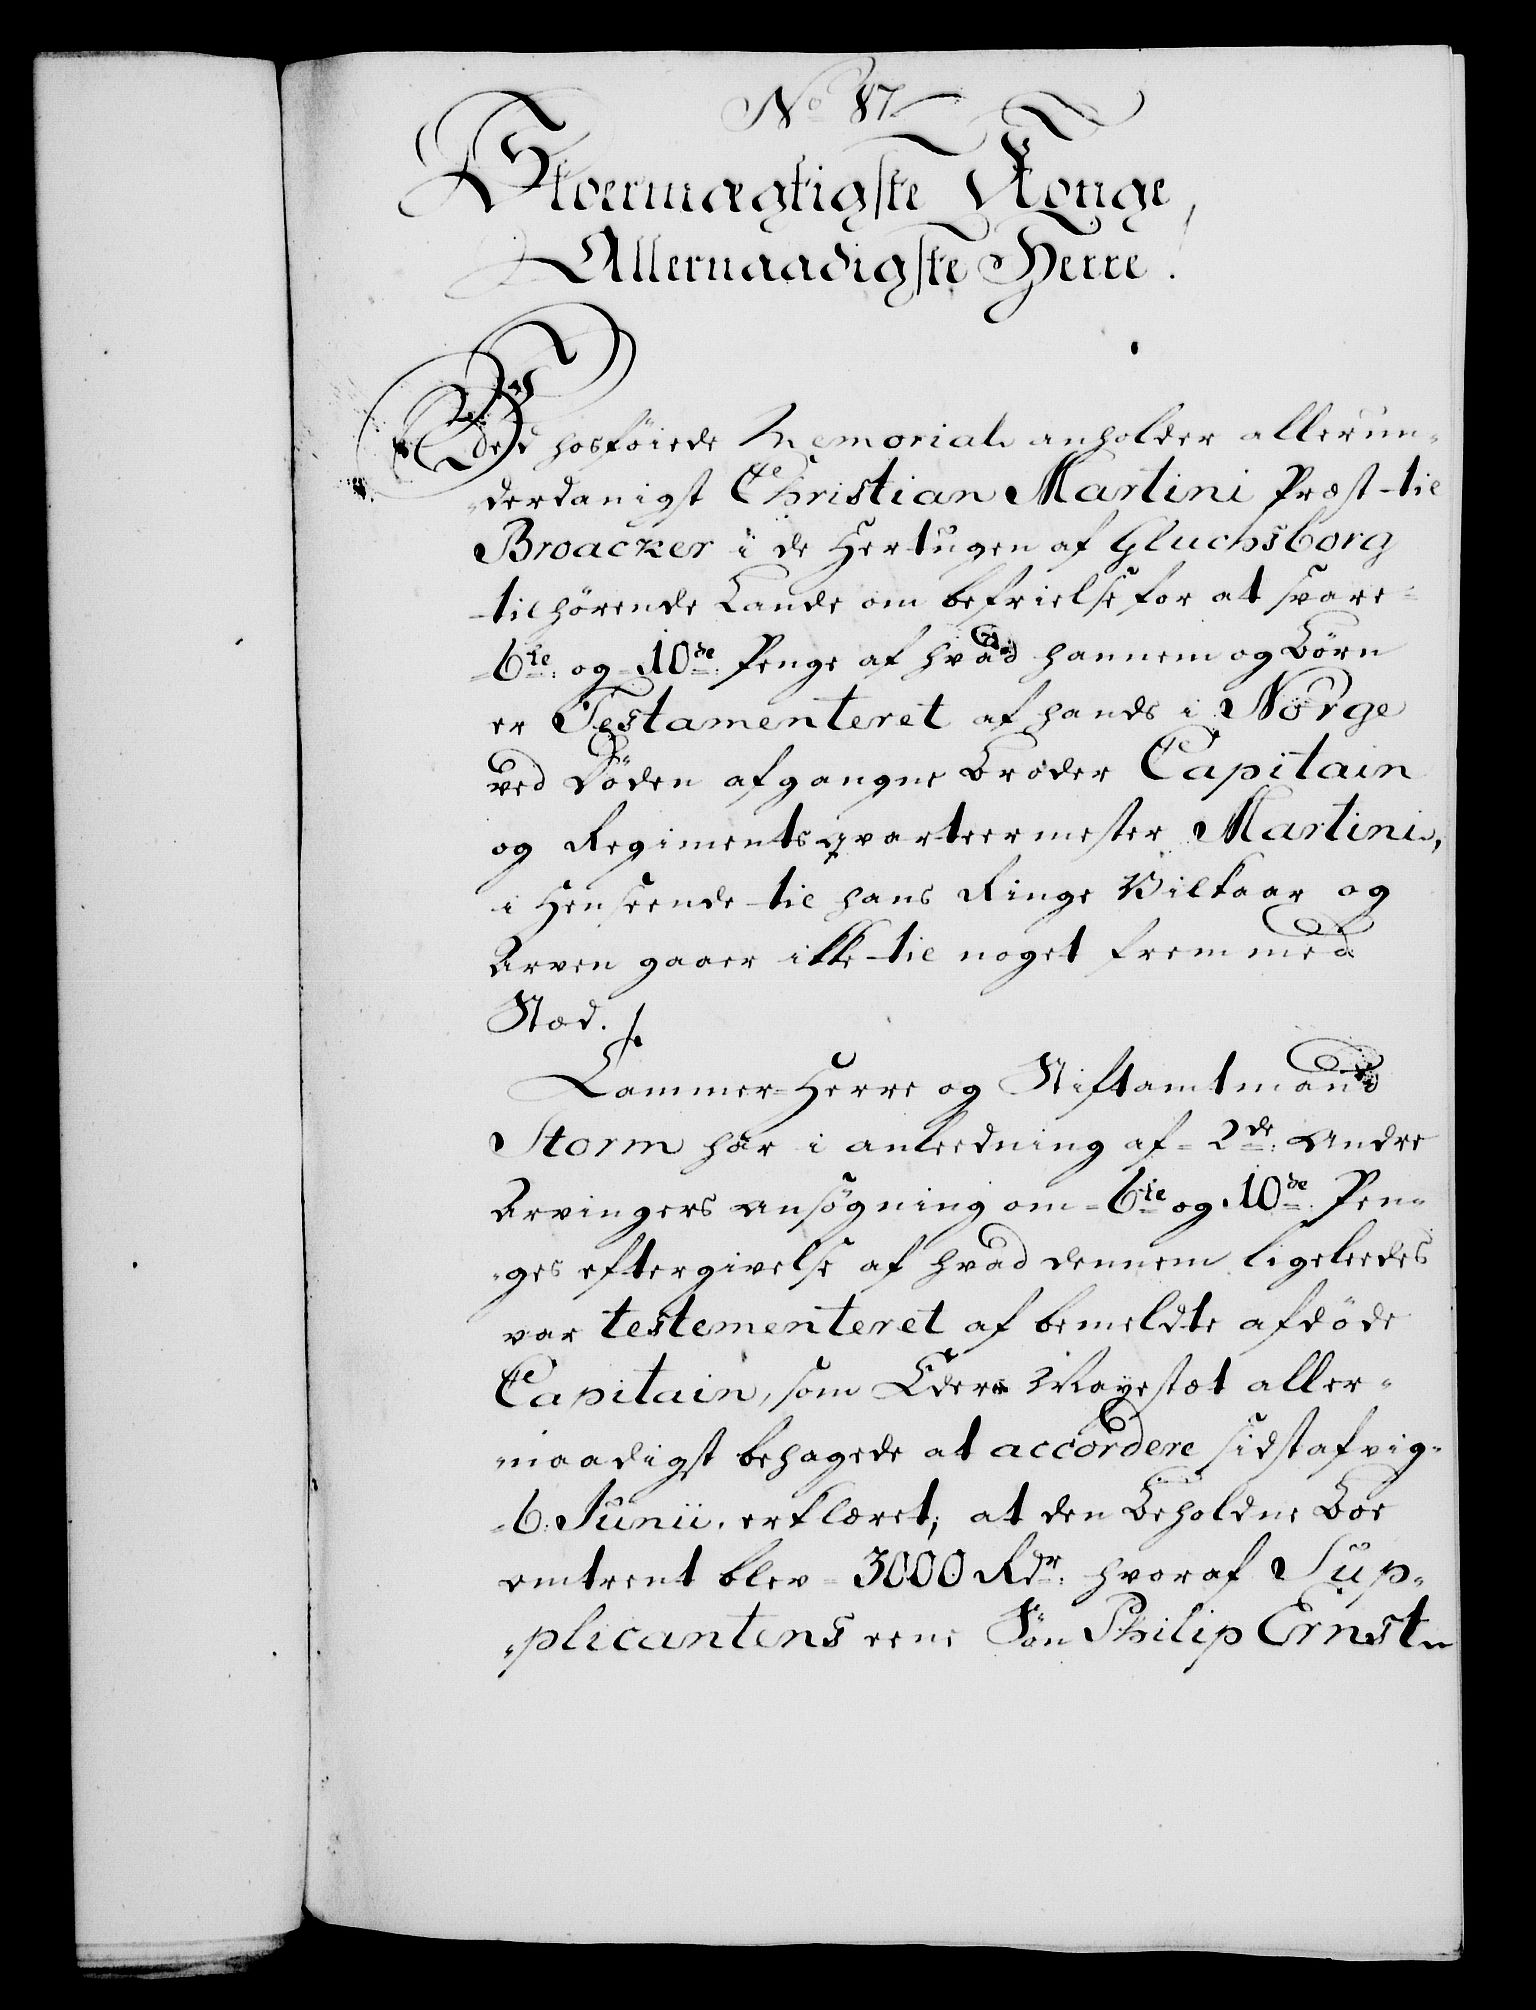 No 87
Stoermægtigste Konge,
Allernaadigste Herre!
Ved hosföiede Memorial anholder allerun-
derdanigst Christian Martini Præst til
Broacker i de Hertugen af Gluchsborg
tilhörende Lande om befrielse for at svare
6te og 10de Penge af hvad hannem og Börn
er Testamenteret af hands i Norge
ved Döden afgangne Broder Capitain
og Regimentsqvarteermester Martini,
i Henseende til hans Ringe Vilkaar og
Arven gaaer ikke til noget fremmed
Stæd.
Cammer-Herre og Stiftamtmand
Storm har i anleedning af 2de andre
Arvingers ansögning om 6te og 10de Pen-
ges eftergivelse af hvad dennem ligeleedes
var testementeret af bemeldte afdöde
Capitain, som Eders Mayestæt aller-
naadigst behagede at accordere sidstafvig-
6: Junii, erklæret, at den Beholdne Boe
omtrent blev 3000 Rdr. hvoraf Sup-
plicantens eene Sön Philip Ernst